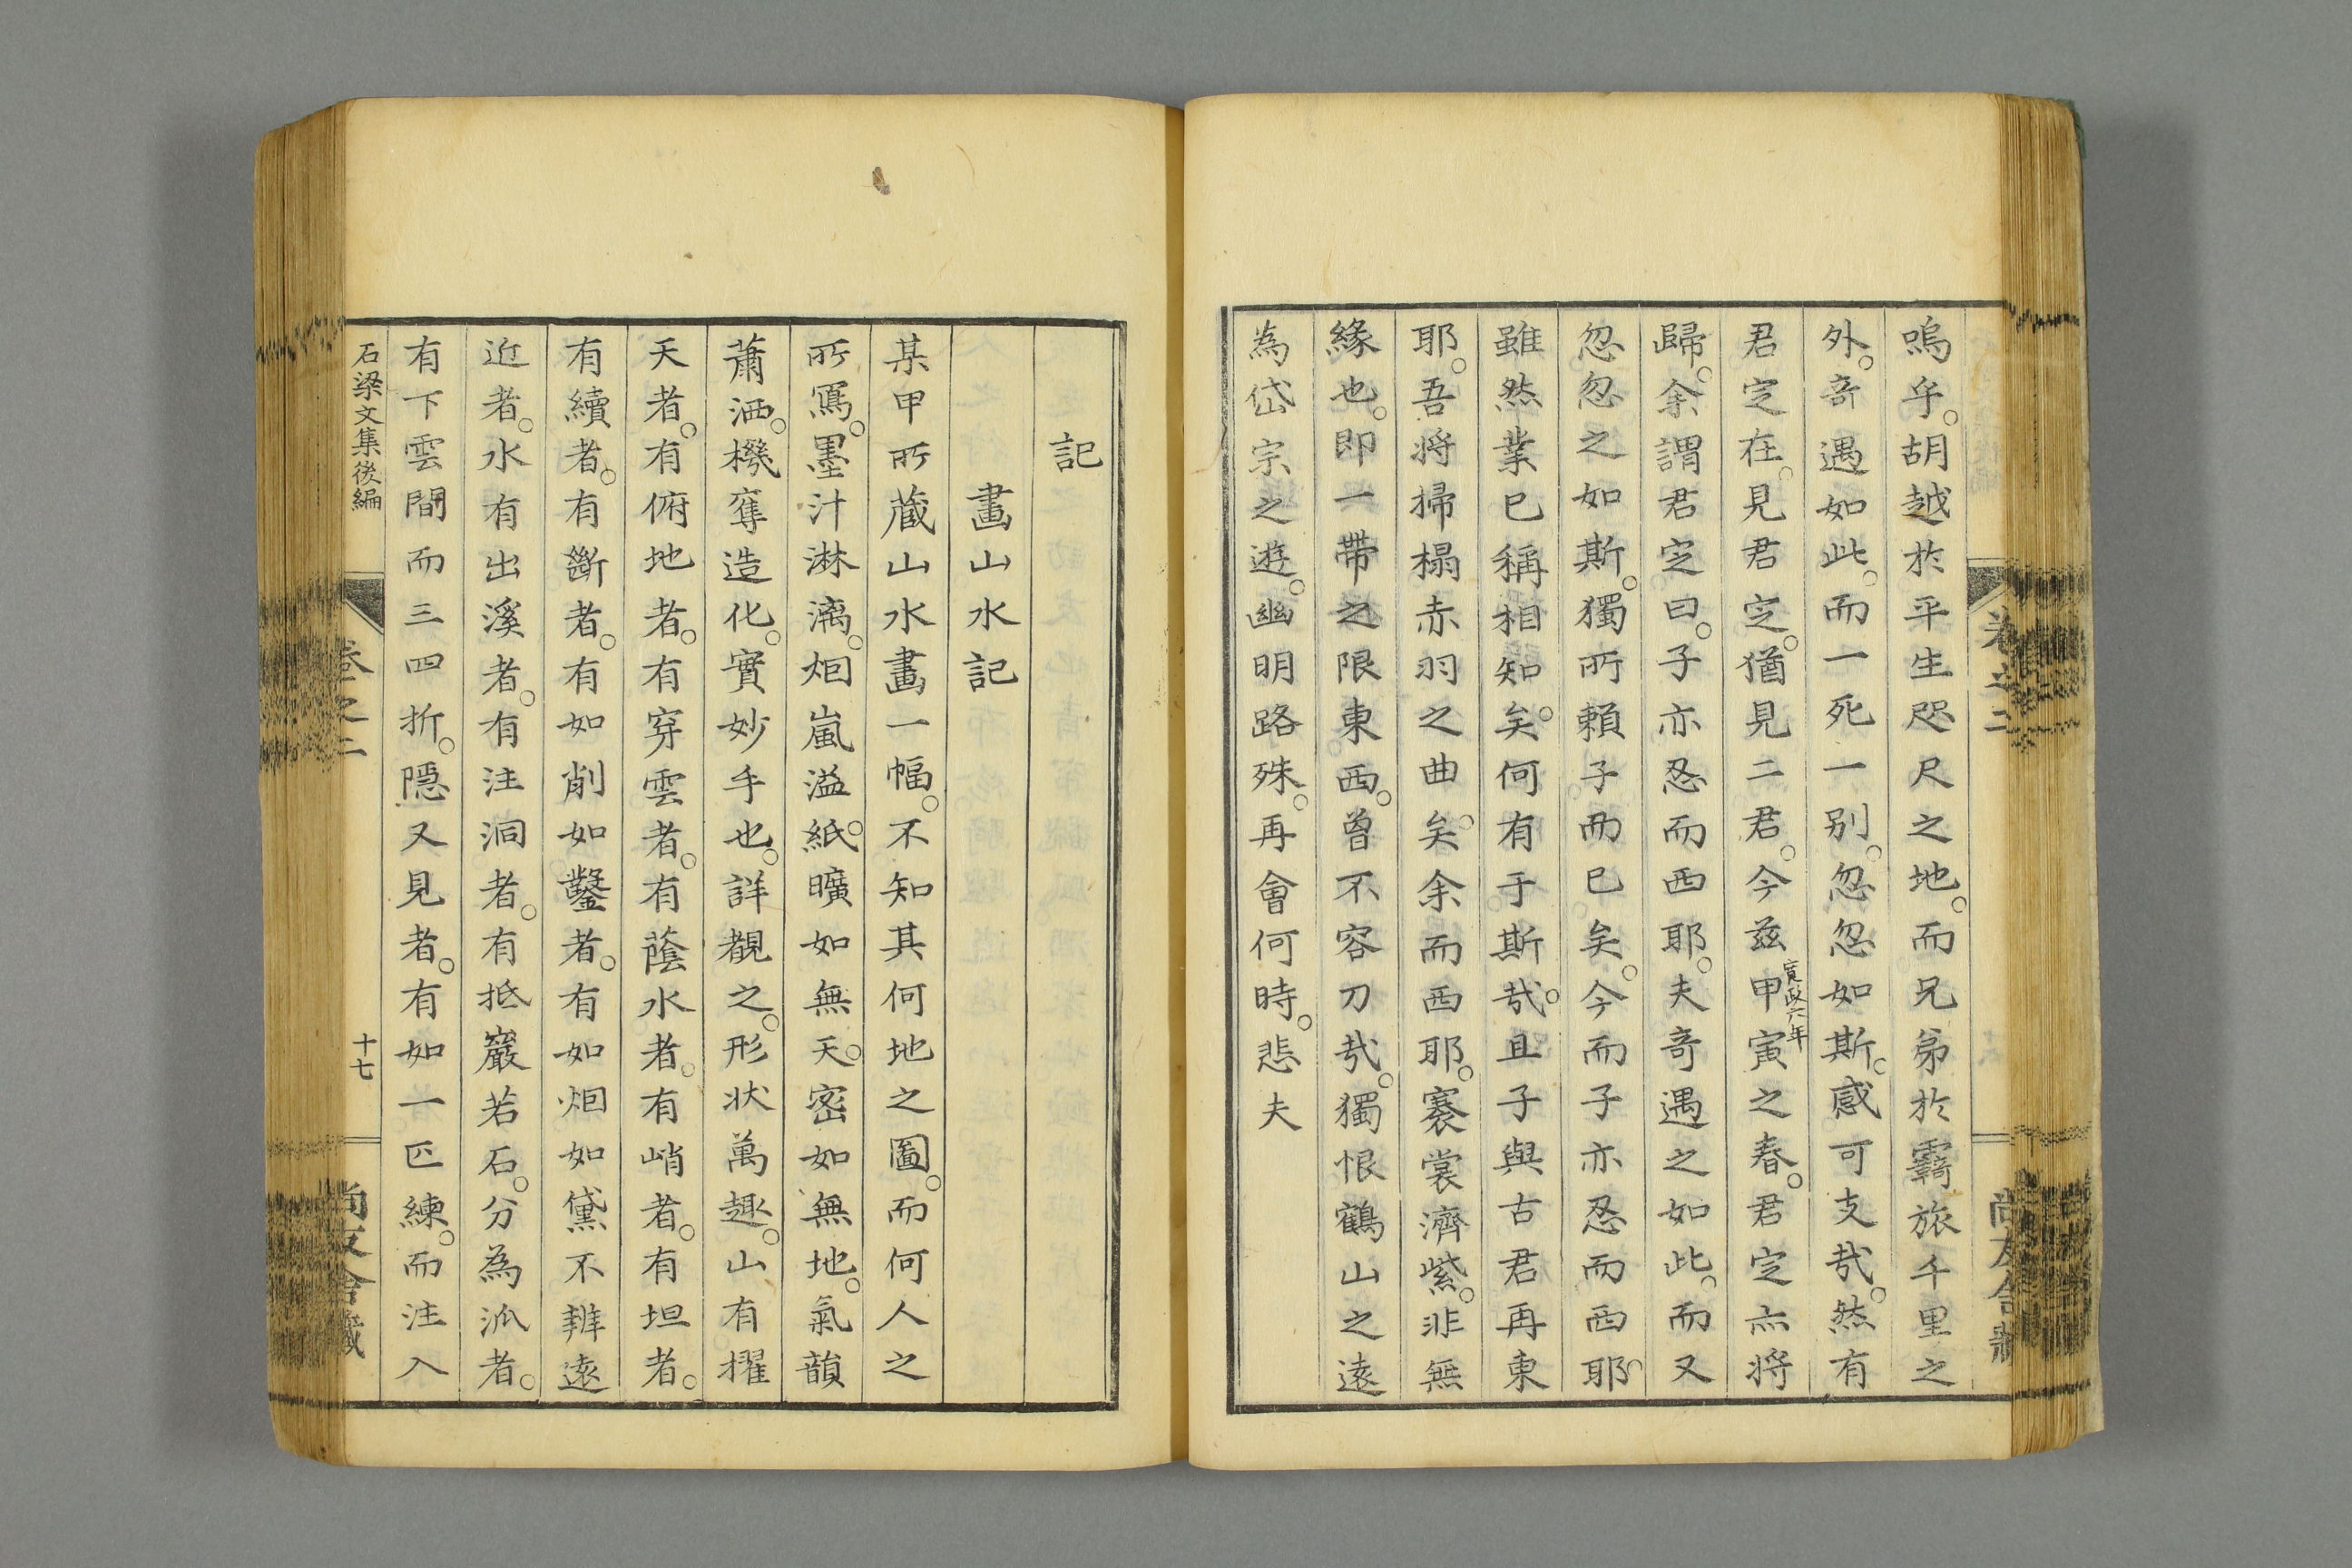 嗚乎。胡越於平生咫尺之地。而兄弟於羇旅千里之
外。奇遇如此。而一死一別。忽忽如斯。感可支㢤。然有
君定在。見君定。猶見二君。今茲甲寅之春。君定亦將
寛政六年
歸。余謂君定曰。子亦忍而西耶。夫奇遇之如此。而又
忽忽之如斯。獨所賴子而已矣。今而子亦忍而西耶。
雖然業已稱相知矣。何有于斯㢤。且子與古君再東
耶。吾將掃榻赤羽之曲矣。余而西耶。褰裳濟紫。非無
緣也。即一帶之限東西。曽不容刀㢤。獨恨鶴山之遠
為岱宗之遊。幽明路殊。再會何時。悲夫
卷之二
尚友舍藏
記
畫山水記
某甲所蔵山水畫一幅。不知其何地之圖。而何人之
所寫。墨汁淋漓。烟嵐溢紙。曠如無天。密如無地。氣韻
蕭洒。機奪造化。實妙手也。詳覩之。形状萬趣。山有擢
天者。有俯地者。有穿雲者。有蔭水者。有峭者。有坦者。
有續者。有斷者。有如削如鑿者。有如烟如黛不辨遠
近者。水有出溪者。有注洞者。有抵巖若石。分為派者。
有下雲間而三四折。隠又見者。有如一匹練。而注入
石梁文集後編
卷之二
十七
尚友舍藏